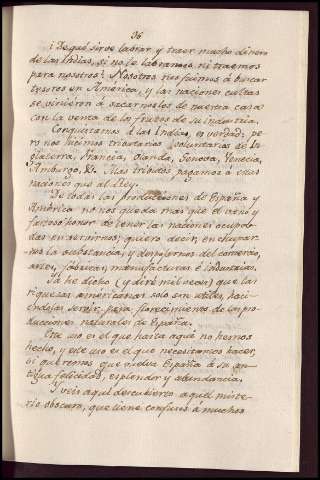 36
¿De qué sirve labrar y traer mucho dinero
de las Indias, si no le labramos ni traemos
para nosotros? Nosotros nos fuimos á buscar
tesoros en America, y las naciones cultas
se vinieron á sacarnoslos de nuestra casa
con la venta de los frutos de su industria.
Conquistamos á las Indias, es verdad; pe-
ro nos hicimos tributarios voluntarios de In-
glaterra, Francia, Olanda, Genova, Venecia,
Amburgo, &. Mas tributos pagamos á estas
naciones que al Rey.
De todas las producciones de España y
América no nos queda mas que el vano y
honor de tener las naciones ocupa-
das en servirnos; quiero decir, en chupar-
nos la substancia, y despojarnos del comercio,
artes, fabricas, manufacturas é industrias.
Ya he dicho (y diré mil veces) que las
riquezas américanas solo son utiles, haci-
endolas servir para florecimiento de las pro-
ducciones naturales de España.
Este uso es el que hasta aquí no hemos
hecho, y este uso es el que necesitamos hacer,
si queremos que vuelva España á su an-
tigua felicidad, esplendor y abundancia.
Y veis aquí descubierto aquel miste-
rio obscuro, que tiene confusos á muchos